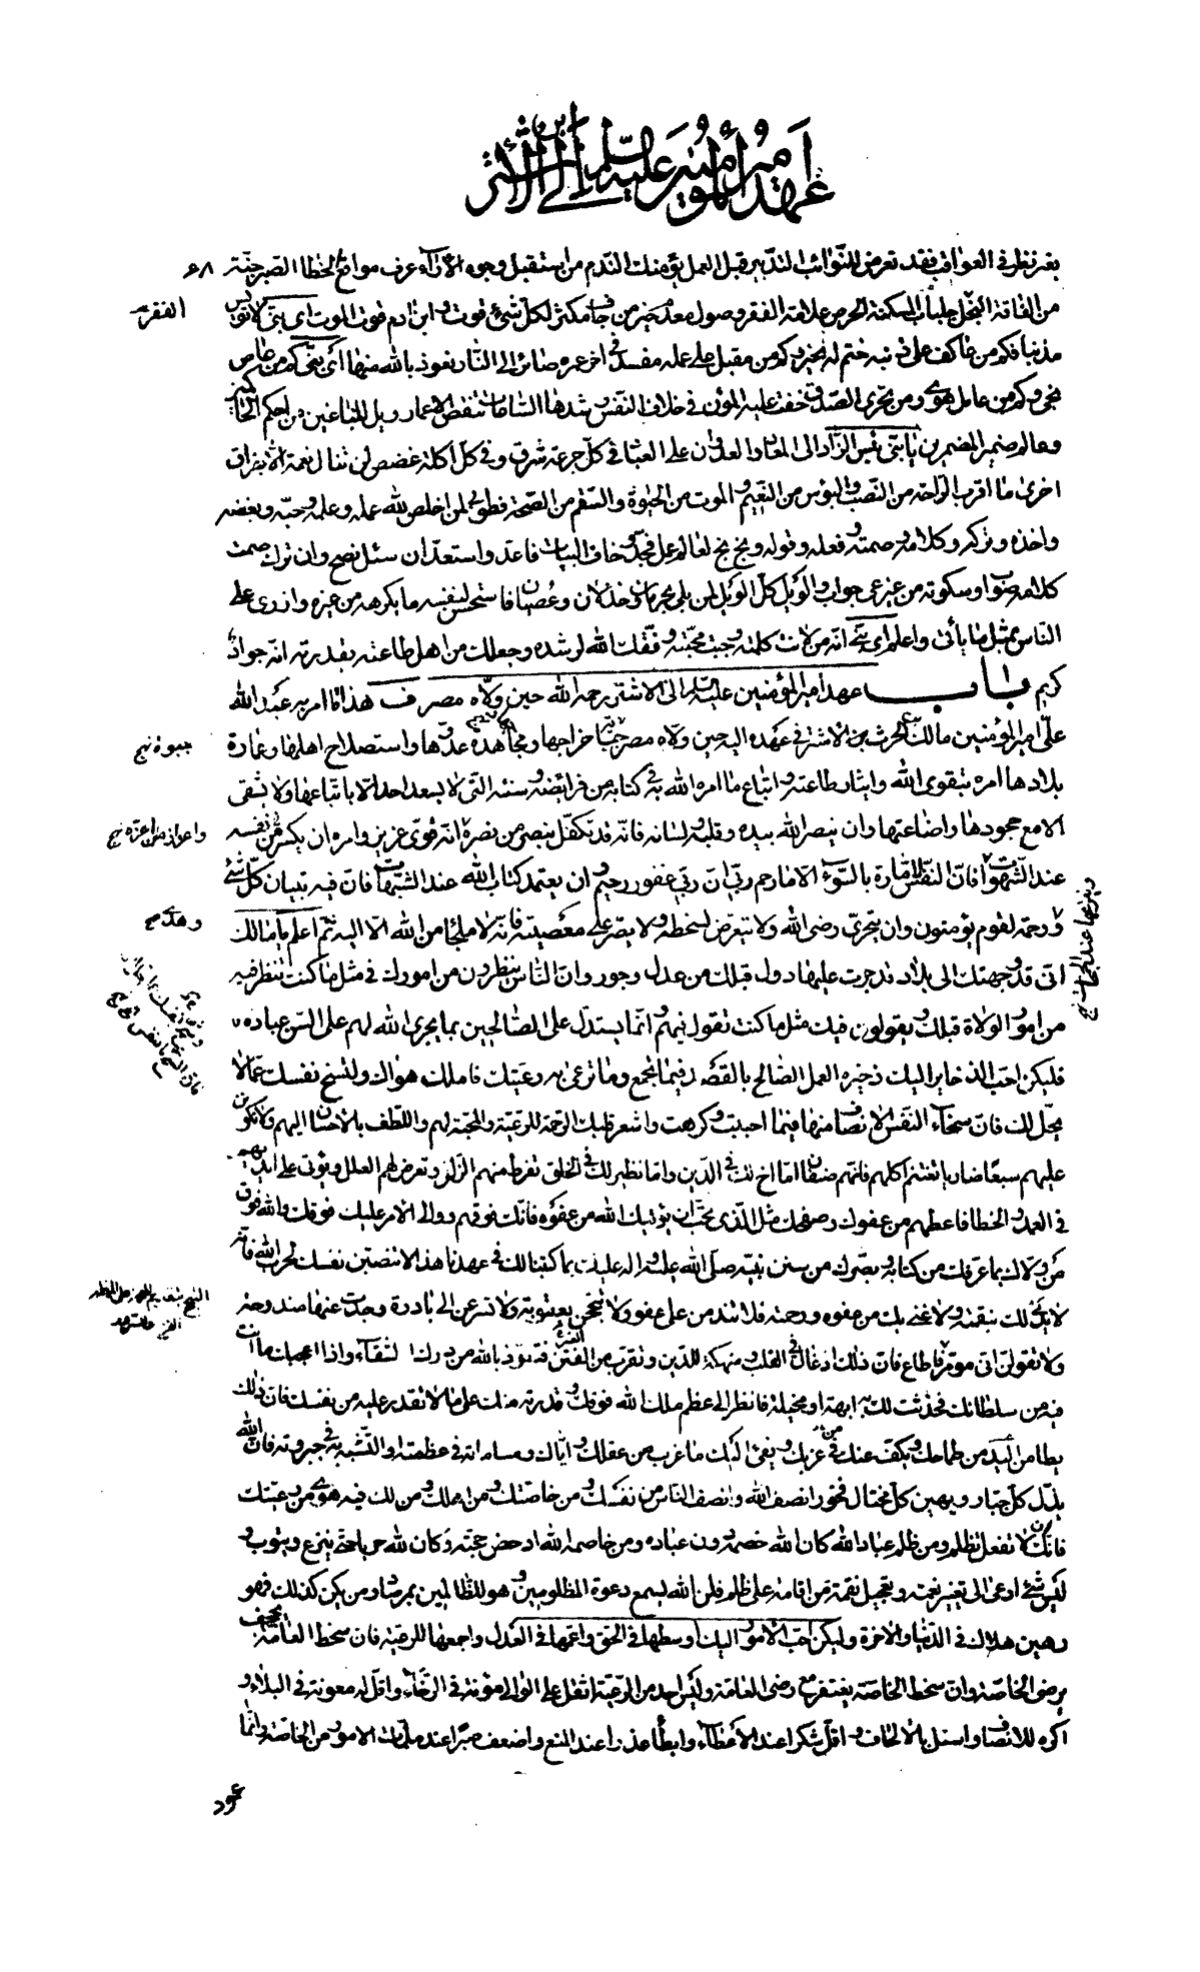 عهد امير المؤمنين عليه السلم الى ابن الاشتر
بغير نظر في العواقب فقد تعرض للنوائب التدبير قبل العمل يؤمنك الندم من استقبل وجوه الآراء عرف مواقع الخطا الصبر جنة
٦٨
من الفاقة البخل جلباب المسكنة الحرص علامة الفقر وصول معدم خير من جاف مكثر لكل شئ قوت وابن ادم قوت الموت اى بنى لا تويس
الفقر
مذنبا فكم من عاكف على ذنبه ختم له بخير وكم من مقبل على عمله مفسد في اخر عمره صائر الى النار نعوذ بالله منها اى بنى كم من عاص
نجى وكم من عامل هوى ومن تحرى الصدق خفت عليه المؤن في خلاف النفس رشدها الساعات تنقص الاعمار ويل للباغين من احكم الحاكمين
وعالم ضمير المضمرين يا بنى بئس الزاد الى المعاد العدوان على العباد في كل جرعة شرق وفي كل اكلة غصص لن تنال نعمة الا بفراق
اخرى ما اقرب الراحة من النصب والبؤس من النعيم والموت من الحيوة والسقم من الصحة فطوبى لمن اخلص لله عمله وعلمه وحبه وبغضه
واخذه وتركه وكلامه وصمته وفعله وقوله وبخ بخ لعالم عمل فجد وخاف البيات فاعد واستعد ان سئل نصح وان ترك صمت
كلامه صواب وسكوته من غير عى جواب والويل كل الويل لمن بلى بحرمان وخذلان وعصيان فاستحسن لنفسه ما يكرهه من غيره وازرى على
الناس بمثل ما يأتى واعلم اى بنى انه من لانت كلمته وجبت محبته وفقك الله لرشده وجعلك من اهل طاعته بقدرته انه جواد
كريم باب عهد امير المؤمنين عليه السلم الى الاشتر رحمه الله حين ولاه مصر ف هذا ما امر به عبد الله
على امير المؤمنين مالك بن الحرث الاشتر في عهده اليه حين ولاه مصر جباية خراجها ومجاهدة عدوها واستصلاح اهلها وعمارة
جبوة نهج
بلادها امره بتقوى الله وايثار طاعته واتباع ما امره الله به في كتابه من فرائضه وسننه التى لا يسعد احد الا باتباعها ولا يشقى
الا مع جحودها واضاعتها وان ينصر الله بيده وقلبه ولسانه فانه قد تكفل بنصر من نصره انه قوى عزيز وامره ان يكسر من نفسه
واعزاز من اعزه نهج
عند الشهوات فان النفس لامارة بالسوء الا ما رحم ربى ان ربى غفور رحيم وان يعتمد كتاب الله عند الشبهات فان فيه تبيان كل شئ
وينزعها عند الجمحات نهج
وهدى ورحمة لقوم يؤمنون وان يتحرى رضى الله ولا يتعرض لسخطه ولا يصر على معصيته فانه لا ملجا من الله الا اليه ثم اعلم يا مالك
وهدى
انى قد وجهتك الى بلاد قد جرت عليها دول قبلك من عدل وجور وان الناس ينظرون من امورك في مثل ما كنت تنظر فيه
من امور الولاة قبلك ويقولون فيك مثل ما كنت تقوله فيهم وانما يستدل على الصالحين بما يجرى الله لهم على السن عباده
فليكن احب الذخاير اليك ذخيرة العمل الصالح بالقصد فيما تجمع وما ترعى به رعيتك فاملك هواك ولتسخ نفسك عما لا
يحل لك فان سخاء النفس الانصاف منها فيما احببت وكرهت واشعر قلبك الرحمة للرعية والمحبة لهم واللطف بالاحسان اليهم ولا تكونن
عليهم سبعا ضاريا تغتنم اكلهم فانهم صنفان اما اخ لك في الدين واما نظير لك في الخلق تفرط منهم الزلل وتعرض لهم العلل ويؤتى على ايديهم
في العمد والخطا فاعطهم من عفوك وصفحك مثل الذى تحب ان يؤتيك الله من عفوه فانك فوقهم ووالى الامر عليك فوقك والله فوق
من ولاك بما عرفك من كتابه وبصرك من سنن نبيه صلى الله عليه واله عليك بما كتبنا لك في عهدنا هذا لا تنصبن نفسك لحرب الله فانه
لا يد لك بنقمته ولا غنى بك من عفوه ورحمته فلا تندمن على عفو ولا تبجحن بعقوبة ولا تسرعن الى بادرة وجدت عنها مندوحة
ولا تقولن انى مؤمر اطاع فان ذلك ادغال في القلب ومنهكة للدين وتقرب من الفتن فتعوذ بالله من درك الشقاء واذا اعجبك ما انت
فيه من سلطانك فحدثت لك به ابهة او مخيلة فانظر الى عظم ملك الله فوقك وقدرته منك على ما لا تقدر عليه من نفسك فان ذلك
يطامن اليك من طماحك ويكف عنك من غربك ويفئ اليك ما عزب من عقلك واياك ومساماته في عظمته او التشبه به في جبروته فان الله
يذل كل جبار ويهين كل مختال فخور انصف الله وانصف الناس من نفسك ومن خاصتك ومن اهلك ومن لك فيه هوى من رعيتك
فانك ان لا تفعل تظلم ومن ظلم عباد الله كان الله خصمه دون عباده ومن خاصمه الله ادحض حجته وكان لله حربا حتى ينزع ويتوب و
ليس شئ ادعى الى تغيير نعمة وتعجيل نقمة من اقامة على ظلم فان الله يسمع دعوة المظلومين وهو للظالمين بمرصاد ومن يكن كذلك فهو
رهين هلاك في الدنيا والاخرة وليكن احب الامور اليك اوسطها في الحق واعمها في العدل واجمعها للرعية فان سخط العامة يجحف
برضى الخاصة وان سخط الخاصة يغتفر مع رضى العامة وليس احد من الرعية اثقل على الوالى مؤنة في الرخاء واقل له معونة في البلاء و
اكره للانصاف واسئل بالالحاف واقل شكرا عند الاعطاء وابطأ عذرا عند المنع واضعف صبرا عند ملمات الامور من الخاصة وانما
عمود